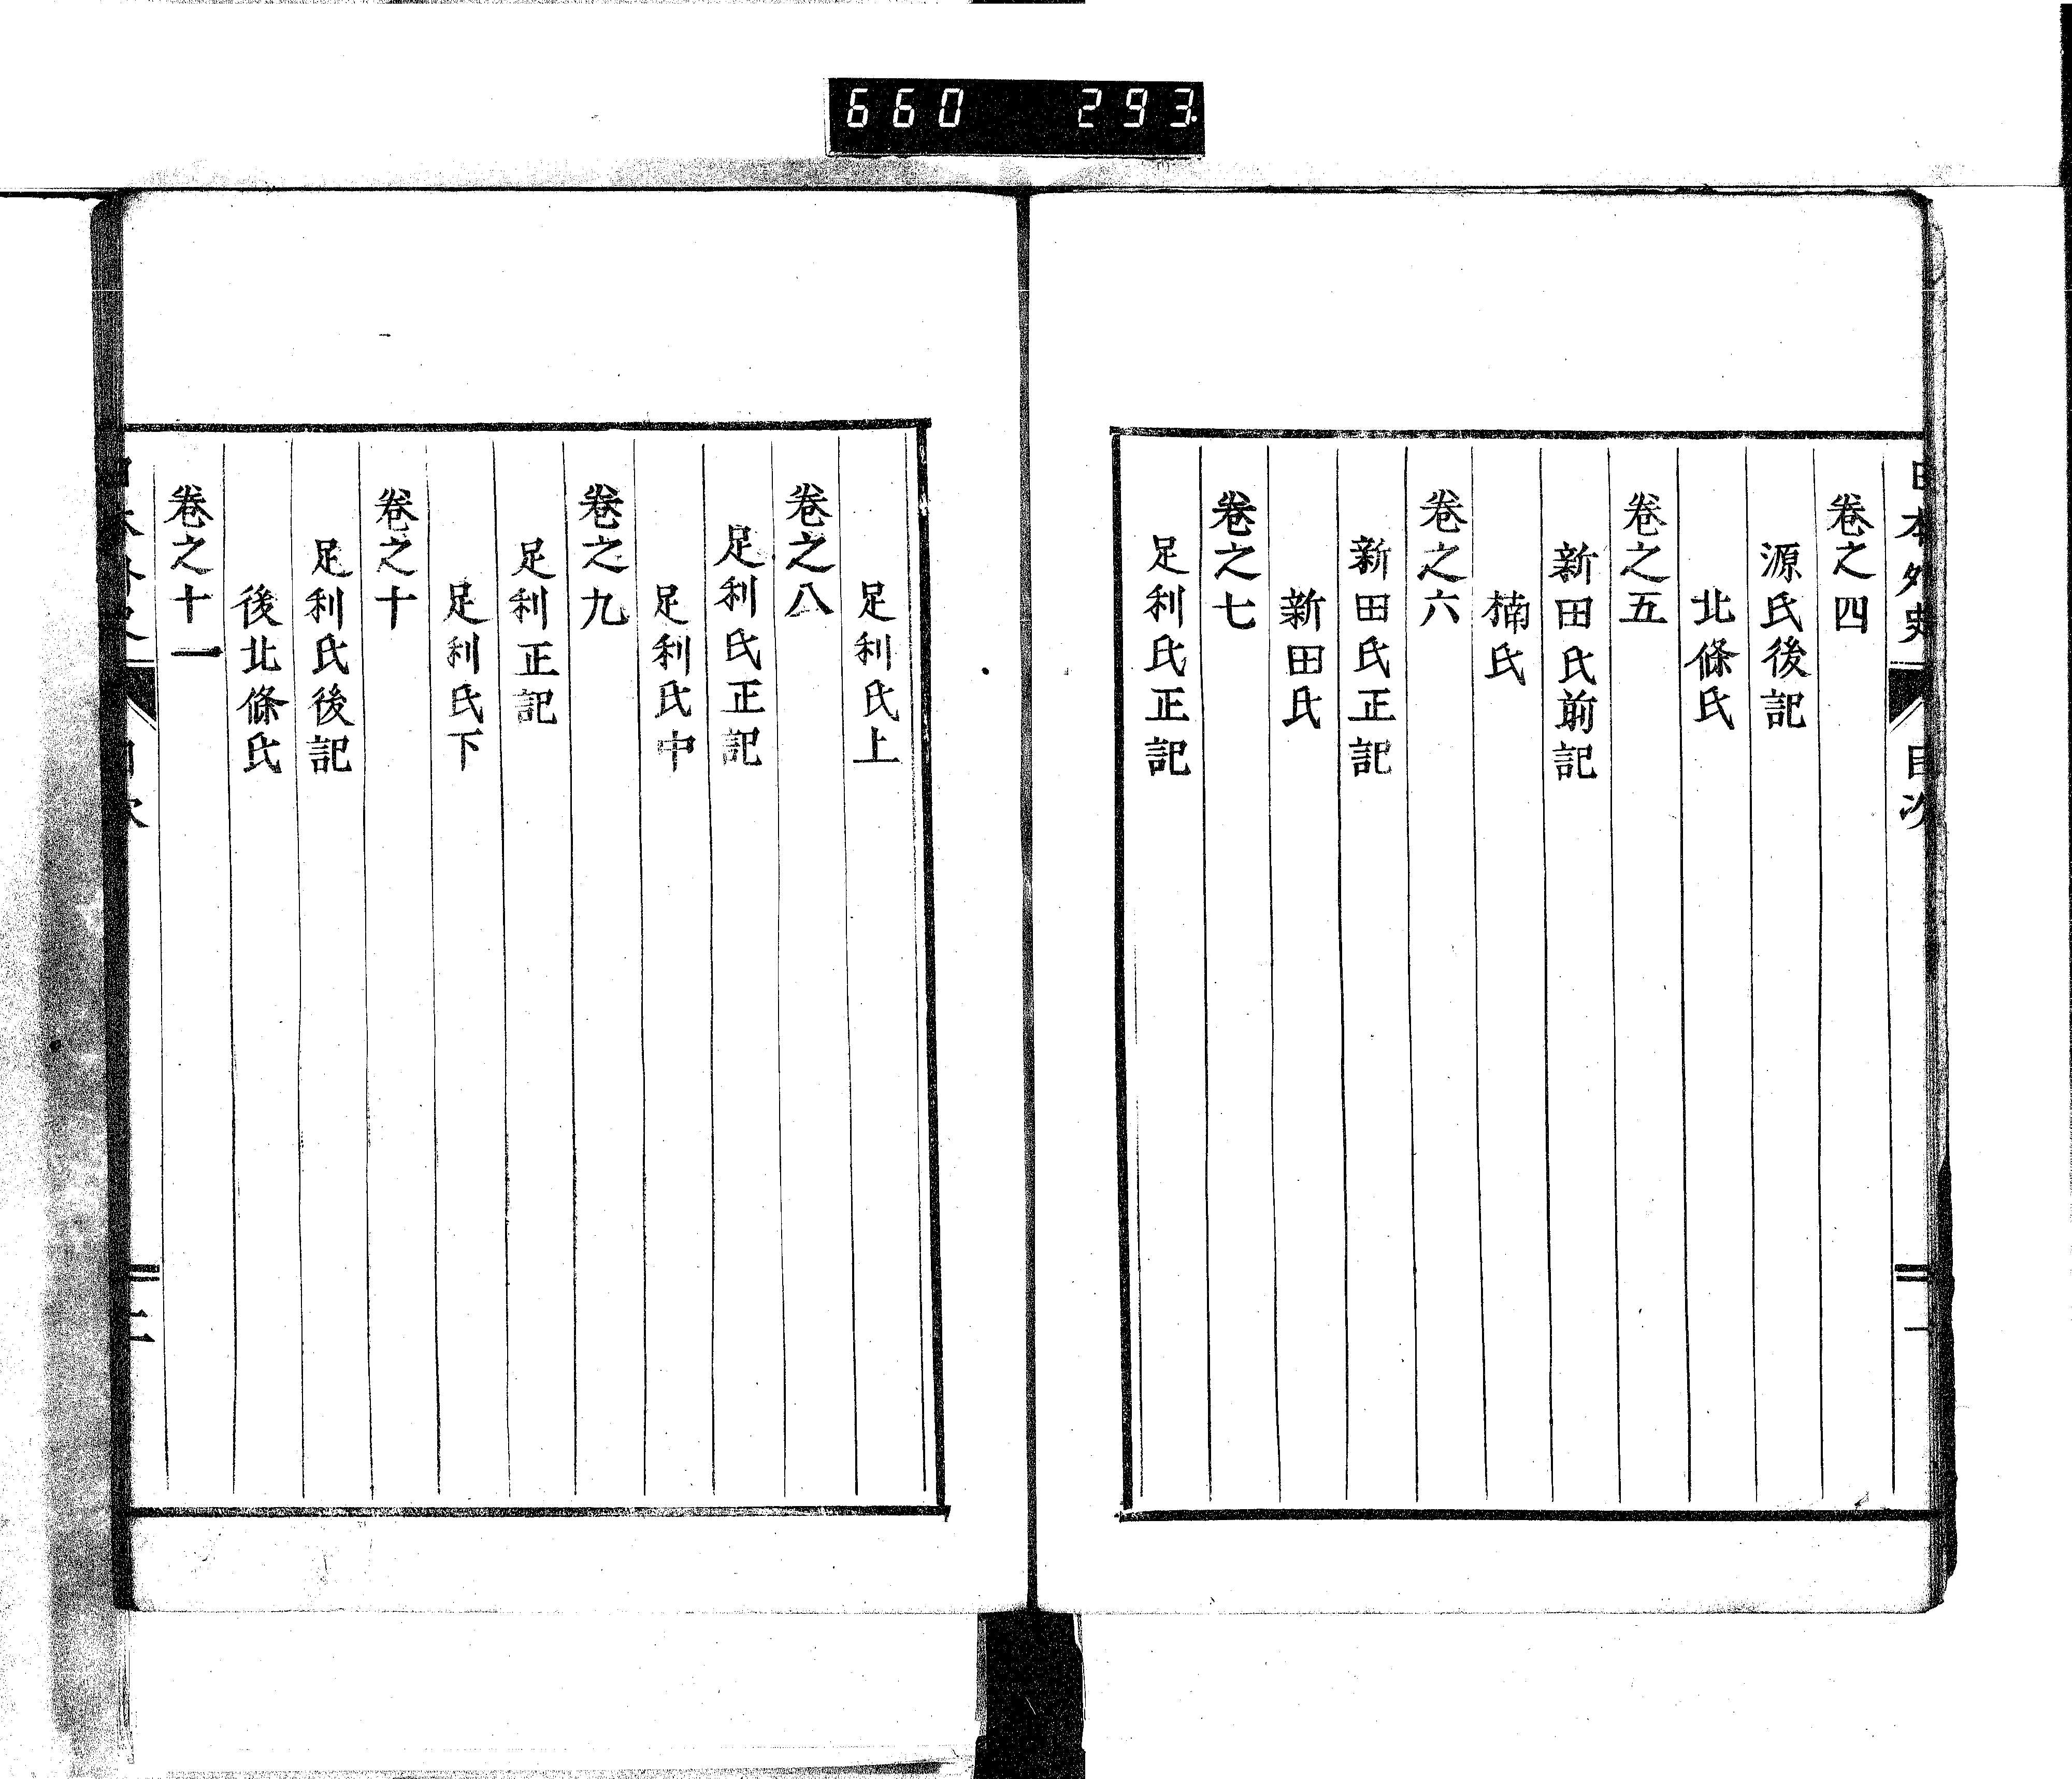 660 293
日本外史 目次 一
卷之四
源氏後記
北條氏
卷之五
新田氏前記
楠氏
卷之六
新田氏正記
新田氏
卷之七
足利氏正記
足利氏上
卷之八
足利氏正記
足利氏中
卷之九
足利正記
足利氏下
卷之十
足利氏後記
後北條氏
卷之十一
日本外史 目次 二